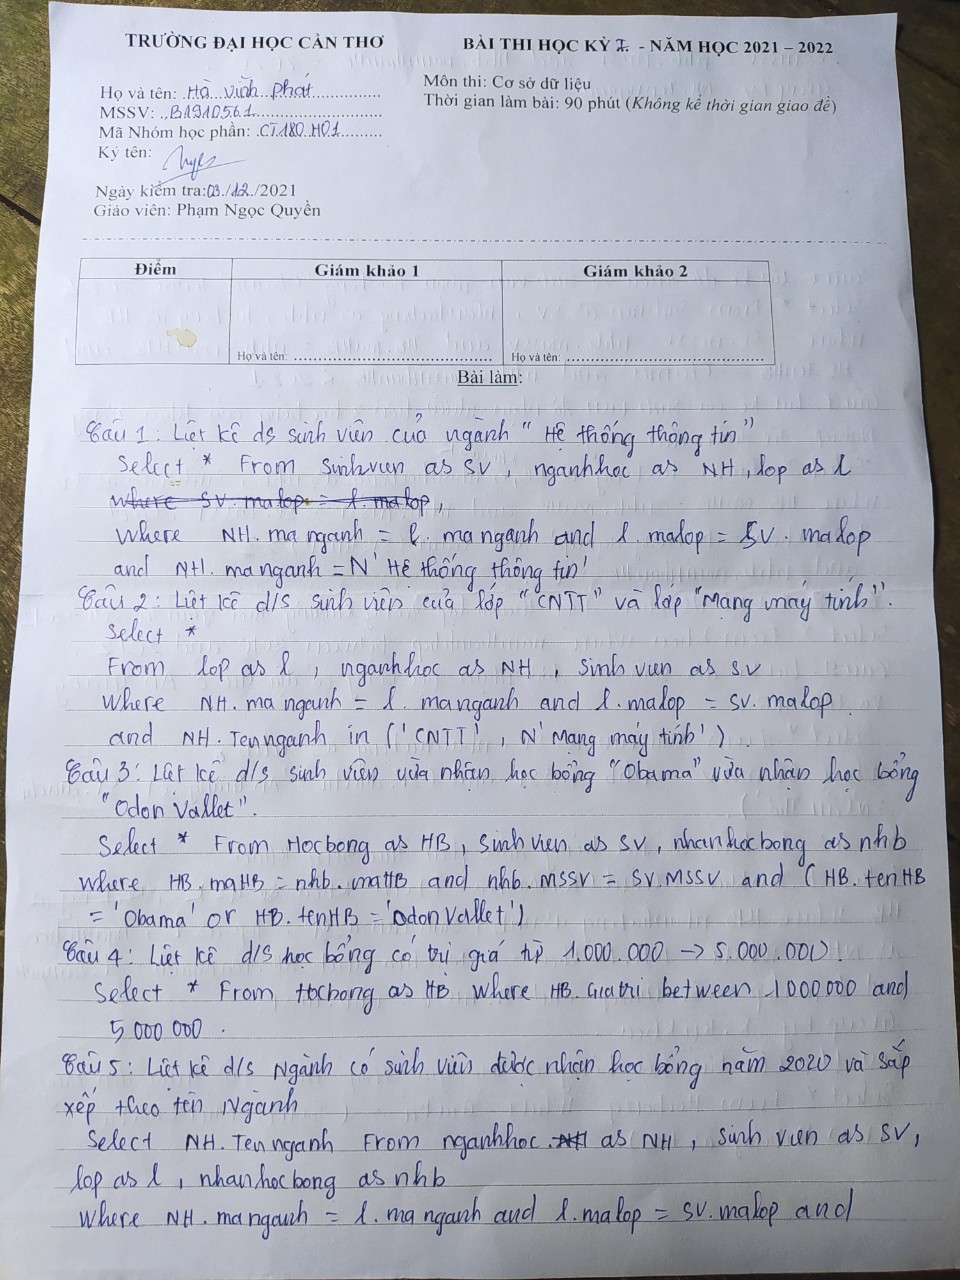 TRƯỜNG ĐẠI HỌC CẦN THƠ
BÀI THI HỌC KỲ I. - NĂM HỌC 2021 – 2022
Họ và tên: Hà Vĩnh Phát
MSSV: B1910561
Mã Nhóm học phần: CT180 H01
Ký tên:
Ngày kiểm tra: 03/12/2021
Giáo viên: Phạm Ngọc Quyền
Môn thi: Cơ sở dữ liệu
Thời gian làm bài: 90 phút (Không kể thời gian giao đề)
Điểm Giám khảo 1 Giám khảo 2
Họ và tên: Họ và tên:
Bài làm:
Câu 1: Liệt kê ds sinh viên của ngành "Hệ thống thông tin"
Select * From sinhvien as SV, nganhhoc as NH, lop as l
where SV.malop = l.malop,
where NH.manganh = l.manganh and l.malop = SV.malop
and NH.manganh = N'Hệ thống thông tin'
Câu 2: Liệt kê d/s sinh viên của lớp "CNTT" và lớp "Mạng máy tính".
Select *
From lop as l, nganhhoc as NH, sinh vien as SV
Where NH.manganh = l.manganh and l.malop = SV.malop
and NH.Tennganh in ('CNTT', N'Mạng máy tính').
Câu 3: Liệt kê d/s sinh viên vừa nhận học bổng "Obama" vừa nhận học bổng
"Odon Vallet".
Select * From Hocbong as HB, sinhvien as SV, nhanhocbong as nhb
where HB.maHB = nhb.maHB and nhb.MSSV = SV.MSSV and (HB.tenHB
= 'Obama' or HB.tenHB = 'Odon Vallet')
Câu 4: Liệt kê d/s học bổng có trị giá từ 1.000.000 → 5.000.000!
Select * From Hocbong as HB where HB.Giatri between 1000000 and
5000000.
Câu 5: Liệt kê d/s Ngành có sinh viên được nhận học bổng năm 2020 và sắp
xếp theo tên Ngành
Select NH.Tennganh From nganhhoc NH as NH, sinh vien as SV,
lop as l, nhanhocbong as nhb
Where NH.manganh = l.manganh and l.malop = SV.malop and